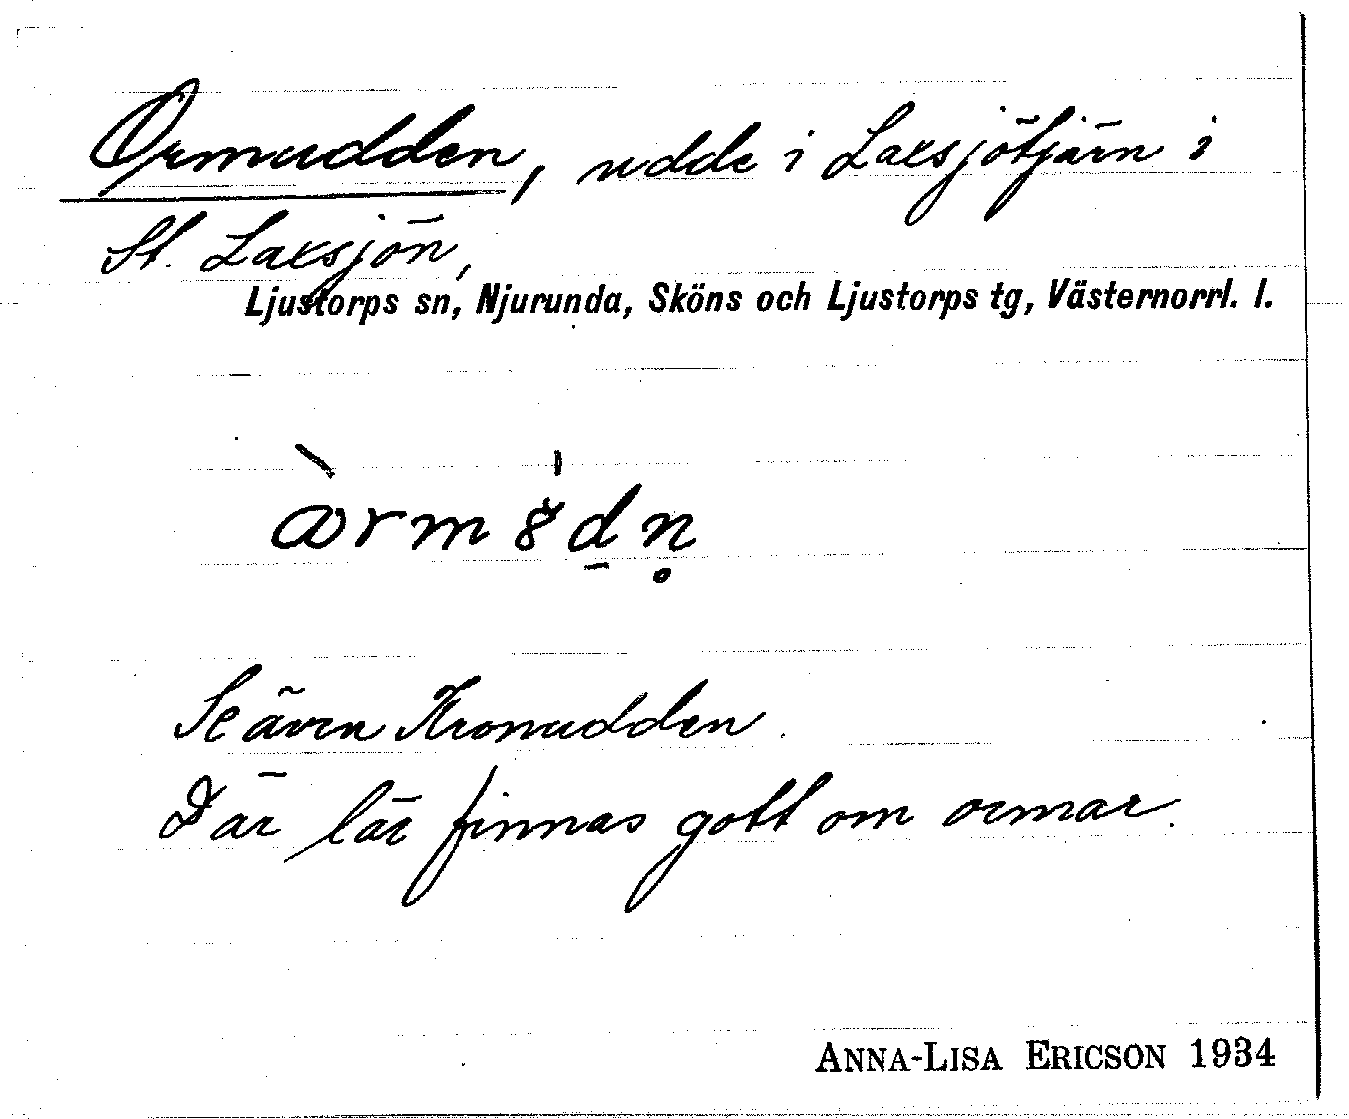 Ormudden, udde i Laxsjötjärn i
St. Laxsjön,
Ljustorps sn, Njurunda, Sköns och Ljustorps tg, Västernorrl. l.
Se även Kronudden.
Där lär finnas gott om ormar.
ANNA-LISA ERICSON 1934